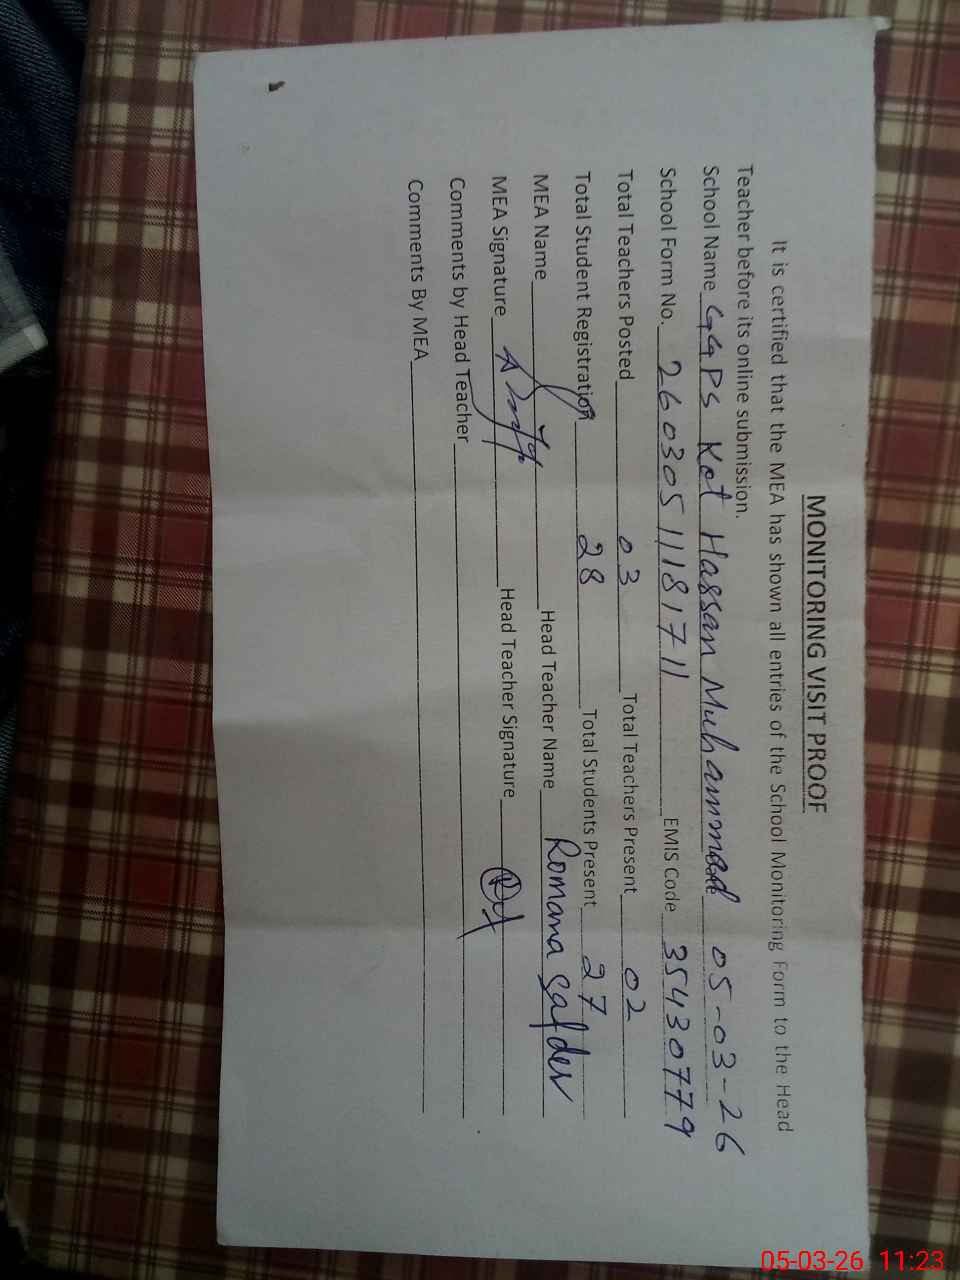 MONITORING VISIT PROOF
It is certified that the MEA has shown all entries of the School Monitoring Form to the Head
Teacher before its online submission.
School Name GGPS Kot Hassan Muhammad 05-03-26
School Form No. 26030511181711 EMIS Code 35430779
Total Teachers Posted 03 Total Teachers Present 02
Total Student Registration 28 Total Students Present 27
MEA Name Head Teacher Name Romana Safder
MEA Signature Head Teacher Signature
Comments by Head Teacher
Comments By MEA
05-03-26 11:23